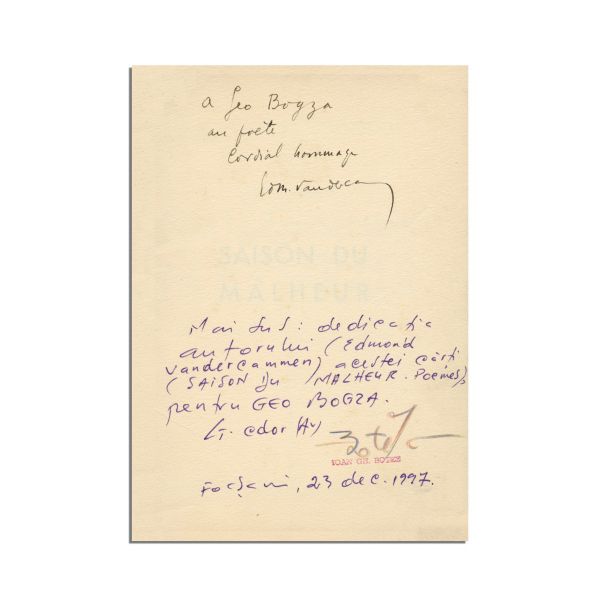 a Geo Bogza
au poète
Cordial hommage
Edm. Vandercam
SAISON DU
MALHEUR
Mai sus: dedicația
autorului (Edmond
Vandercammen) acestei cărți
(SAISON Du MALHEUR. Poèmes),
pentru GEO BOGZA.
IOAN GH. BOTEZ
Focșani, 23 dec. 1997.